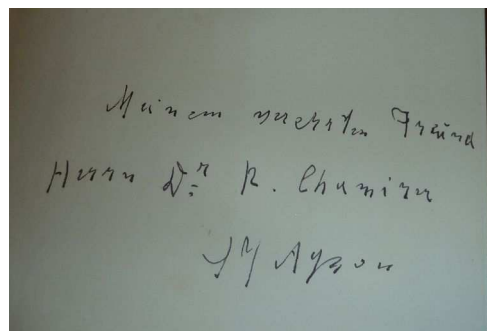 Meinem verehrten Freund
Herrn Dr R. Chamizer
Agnon